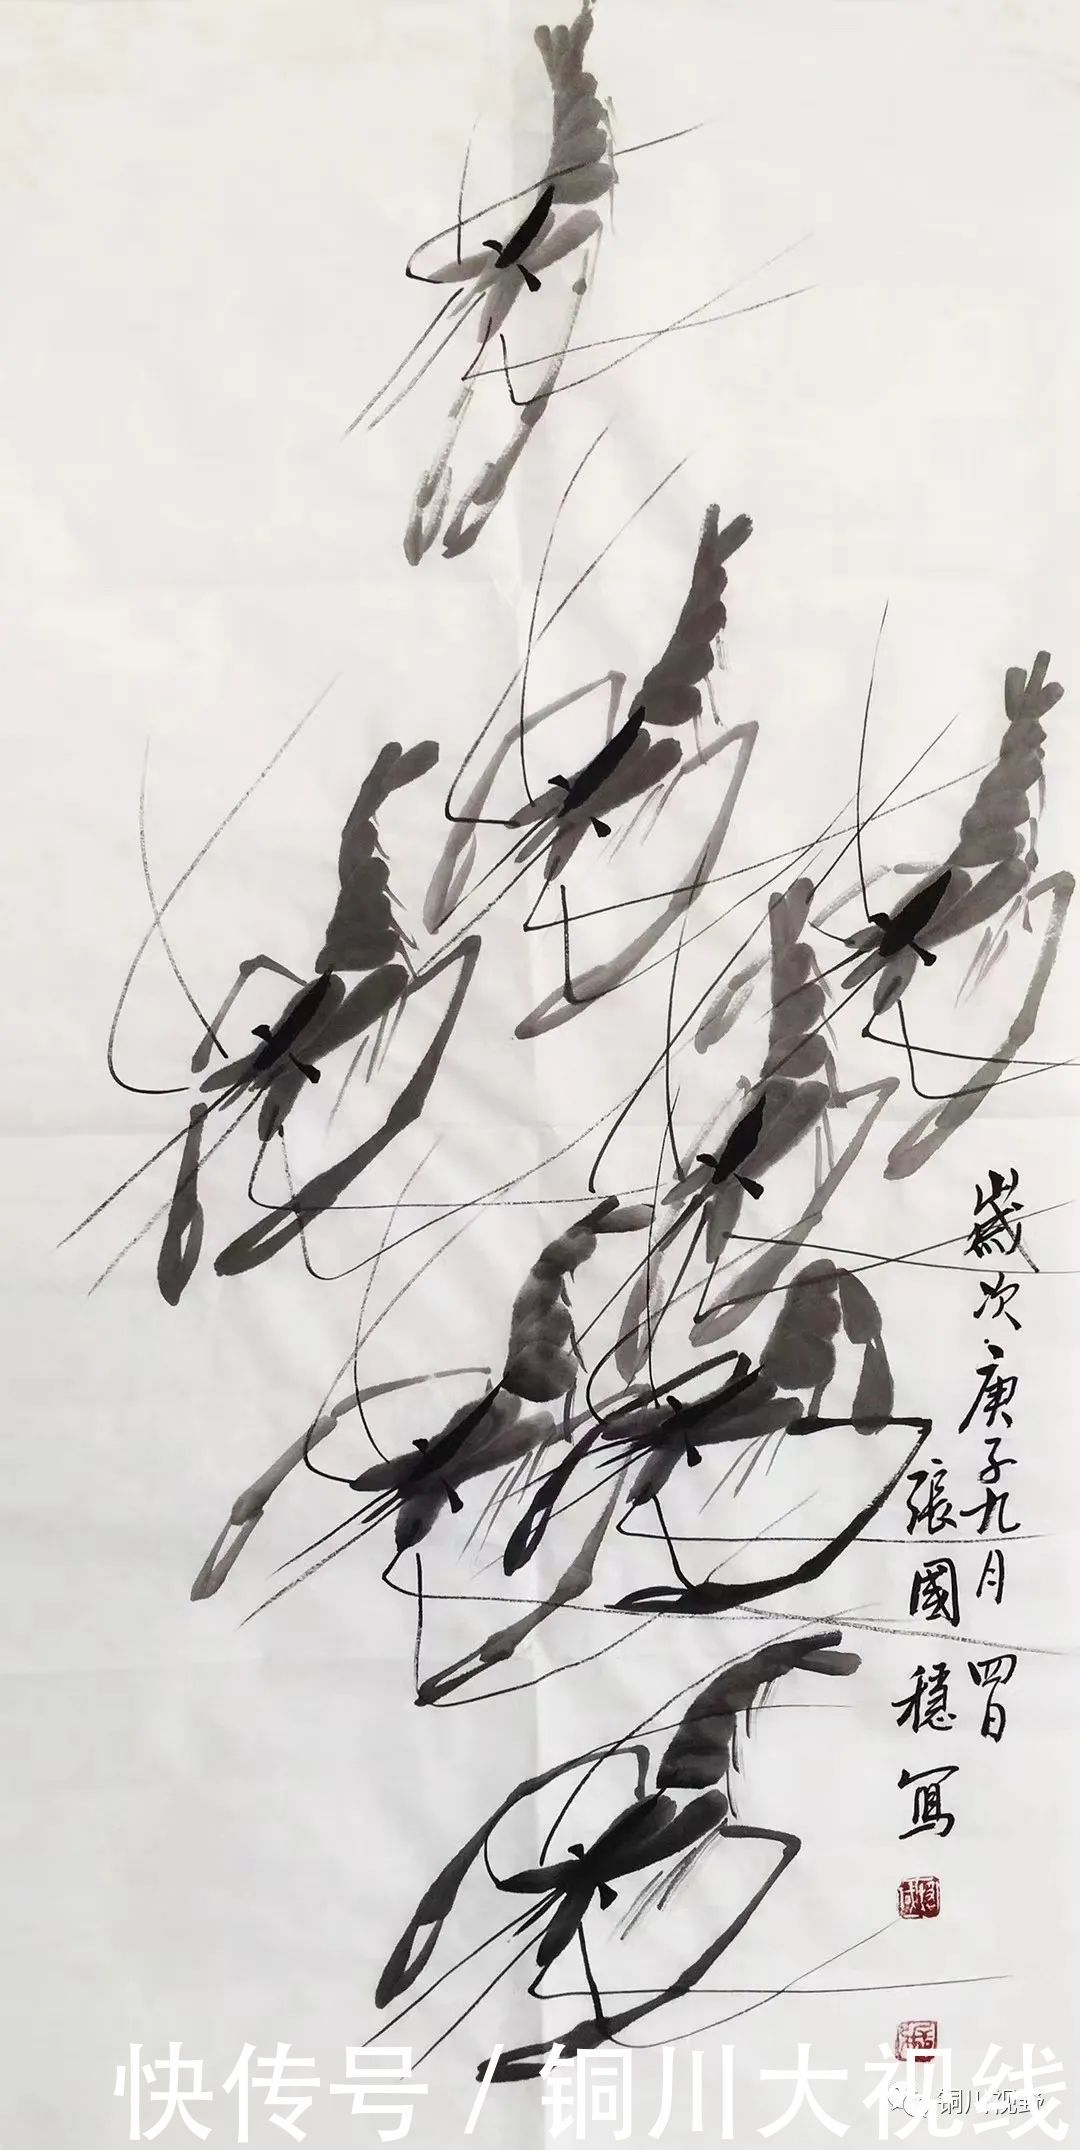 歲次庚子九月四日
張國穩寫
快传号/铜川大视线
铜川视野